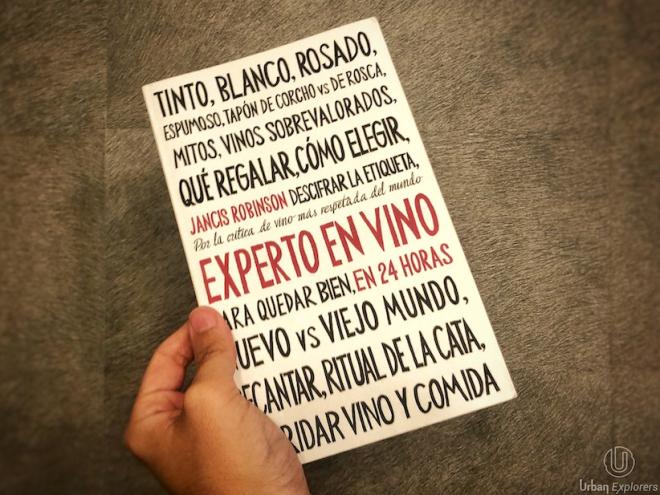 TINTO, BLANCO, ROSADO,
ESPUMOSO, TAPÓN DE CORCHO VS DE ROSCA,
MITOS, VINOS SOBREVALORADOS,
QUÉ REGALAR, CÓMO ELEGIR,
JANCIS ROBINSON DESCIFRAR LA ETIQUETA,
Por la crítica de vino más respetada del mundo
EXPERTO EN VINO
ARA QUEDAR BIEN, EN 24 HORAS
UEVO VS VIEJO MUNDO,
CANTAR, RITUAL DE LA CATA,
RIDAR VINO Y COMIDA
Urban Explorers